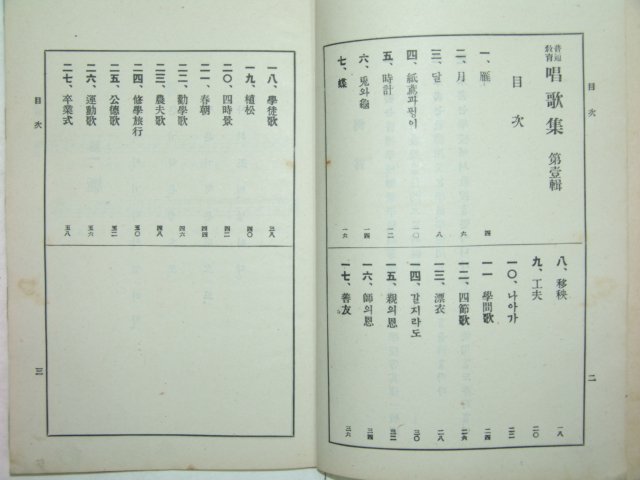 普通
教育
唱歌集 第壹輯
目次
一、雁 四
二、月 六
三、달 八
四、紙鳶과핑이 一〇
五、時計 一二
六、兎와龜 一四
七、蝶 一六
八、移秧 一八
九、工夫 二〇
一〇、나아가 二二
一一、學問歌 二四
一二、四節歌 二六
一三、漂衣 二八
一四、갈지라도 三〇
一五、親의恩 三二
一六、師의恩 三四
一七、善友 三六
目次
二
一八、學徒歌 三八
一九、植松 四〇
二〇、四時景 四二
二一、春朝 四四
二二、勸學歌 四六
二三、農夫歌 四八
二四、修學旅行 五〇
二五、公德歌 五二
二六、運動歌 五六
二七、卒業式 五八
目次
三